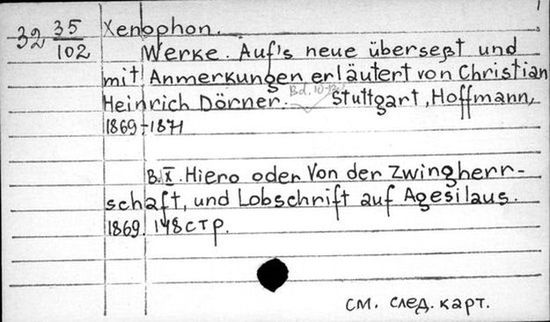 32 35/102
Xenophon.
Werke. Auf's neue überseßt und
mit Anmerkungen erläutert von Christian
Heinrich Dörner. Stuttgart, Hoffmann,
1869-1871
B.X. Hiero oder Von der Zwingherr-
schaft, und Lobschrift auf Agesilaus.
1869. 148 стр.
см. след. карт.